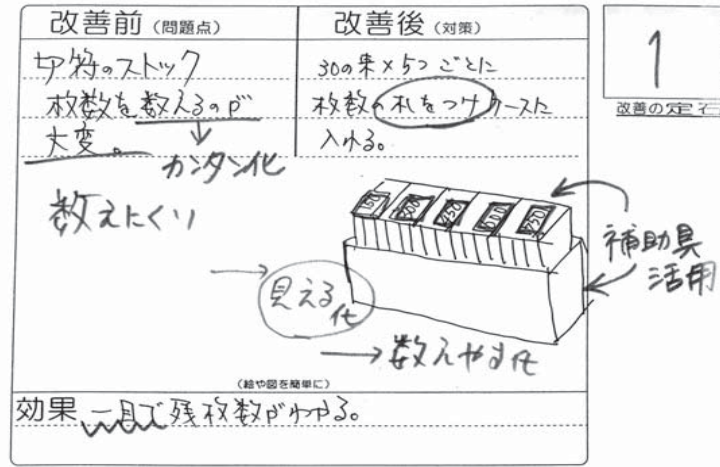 改善前（問題点）
切符のストック
枚数を数えるのが
大変。
カンタン化
数えにくい
改善後（対策）
30の束×5つごとに
枚数の札をつけケースに
入れる。
150
300
450
600
750
補助具
活用
見える
化
数えやす化
（絵や図を簡単に）
効果 一目で残枚数がわかる。
1
改善の定石